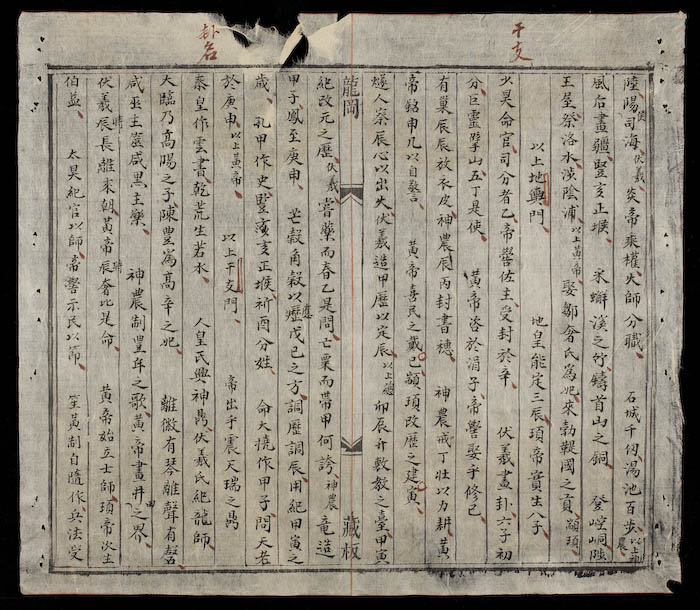 干支
卦名
陸陽司海伏羲 炎帝乘權火師分職 石城千仞湯池百步以上神農
風后畫疆豎亥正堠 永嶰溪之竹鑄首山之銅 登崆峒陟
王屋祭洛水渼陰浦以上黃帝娶鄒奢氏為妃來勃鞮國之貢顓頊
以上地輿門 地皇能定三辰頊帝實生八子
少昊命官司分者乙帝嚳佐主受封於辛 伏羲畫卦六子初
分巨靈擘山五丁是使 黃帝咨於涓子帝嚳娶乎修己
有巢辰辰放衣皮神農辰丙封書穗 神農戒丁壯以力耕黃
帝銘申几以自警 黃帝喜民之戴己顓頊改歷之建寅
燧人察辰心以出火伏羲造甲歷以定辰以上總 卯辰弁數教之臺甲寅
龍岡
藏板
紀改元之歷伏羲嘗藥而春乙是問亡粟而帶甲何誇神農 竜造
甲子鳳至庚申 芒穀角穀以應戊己之方調歷調辰用紀甲寅之
歲 孔甲作史豎亥正堠祈酉分姓 命大撓作甲子問天老
於庚申以上黃帝 以上干支門 帝出乎震天瑞之禼
泰皇作雲書乾荒生若水 人皇氏興神禼伏羲氏紀龍師
大臨乃高陽之子陳豐為高辛之妃 離徽有琴離聲有磬
咸巫主筮咸黑主樂 神農制豐年之歌黃帝畫井之界
伏羲辰長離來朝黃帝辰奢比是命 黃帝始立士師頊帝次主
伯益 太昊紀官以師帝嚳示民以節 笙黃制自隨作兵法受